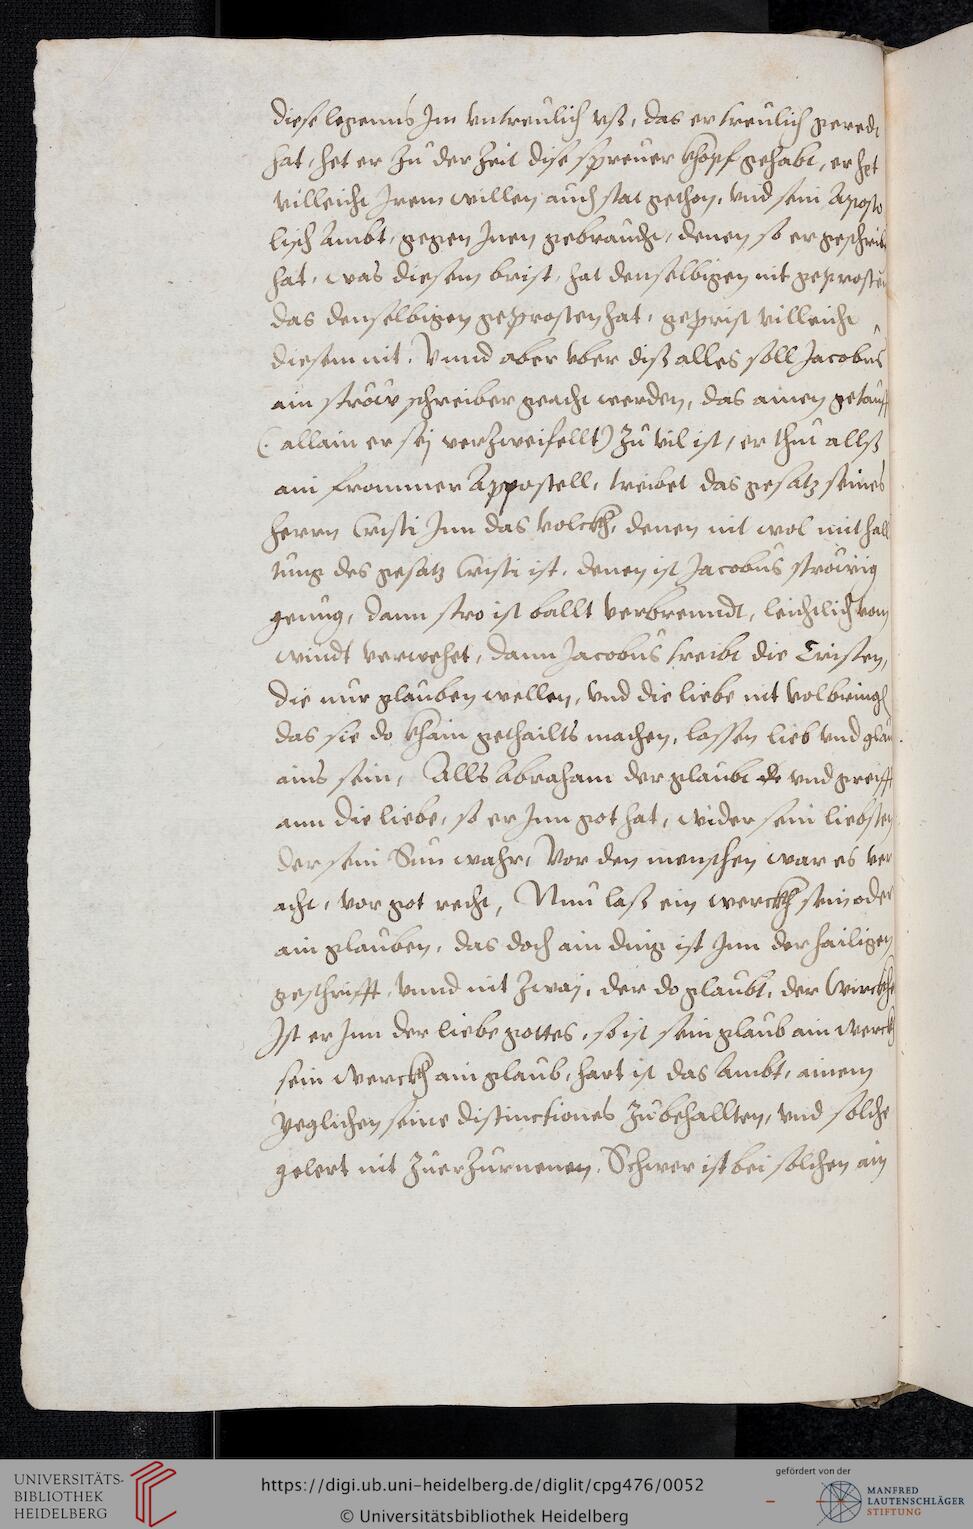 diese legenns Im untreulich uß, das er treulich geredt
hat, het er Zu der Zeit dise spreuer khöpf gehabt, er het
villeicht Irem willen auch stat gethon, und sein Aposto
lisch Ambt, gegen Inen gebraucht, denen so er geschrib
hat, was diesem brist, hat denselbigen nit geprosten
das denselbigen geprosten hat, geprist villeicht
diesem nit. Vnnd aber vber diß alles soll Jacobus
ain ströw schreiber geacht werden, das ainen getaufft
(: allain er sej verzweifellt) Zu vil ist, er thut allß
ain frommer Appostell, treibet das gesatz seines
herrn Cristi Inn das volckh, denen nit wol mit hall
tung des gesatz Cristi ist, denen ist Jacobus ströwig
genug, dann stro ist ballt verbrenndt, leichtlich vom
windt verwehet, dann Jacobus treibt die Cristen,
die nur glauben wellen, vnd die liebe nit volbringen
das sie do khain gethailts machen, lassen lieb vnd glau
ains sein, Alls Abraham der glaubt de vnd greifft
ann die liebe, so er Inn got hat, wider sein liebsten
der sein Sun wahr, Vor den menschen war es ver
acht, vor got recht, Nun laß ein werckh sein oder
ain glauben, das doch ain ding ist Inn der hailigen
geschrifft, vnnd nit Zwaj, der do glaubt, der Wirckhe
Ist er Inn der liebe gottes, so ist sein glaub ain werckh
sein Werckh ain glaub, hart ist das Ambt, ainem
yeglichen seine distinctiones Zubehallten, vnd solche
gelert nit Zuerzurnenen, Schwer ist bei solchen ain
UNIVERSITÄTS-
BIBLIOTHEK
HEIDELBERG
https://digi.ub.uni-heidelberg.de/diglit/cpg476/0052
© Universitätsbibliothek Heidelberg
gefördert von der
MANFRED
LAUTENSCHLÄGER
STIFTUNG